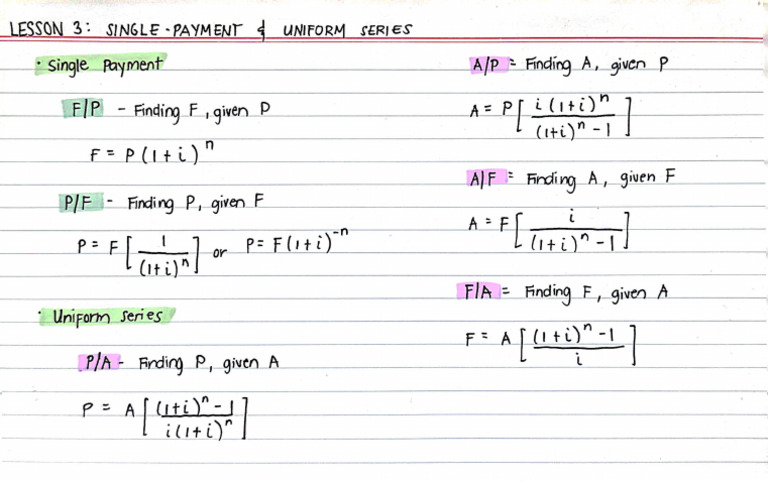 LESSON 3: SINGLE-PAYMENT & UNIFORM SERIES
• Single Payment
F/P - Finding F, given P
F = P(1+i)^n
P/F - Finding P, given F
P = F[1/(1+i)^n] or P = F(1+i)^-n
• Uniform series
P/A - Finding P, given A
P = A[((1+i)^n - 1)/(i(1+i)^n)]
A/P = Finding A, given P
A = P[(i(1+i)^n)/((1+i)^n - 1)]
A/F = Finding A, given F
A = F[i/((1+i)^n - 1)]
F/A = Finding F, given A
F = A[((1+i)^n - 1)/i]